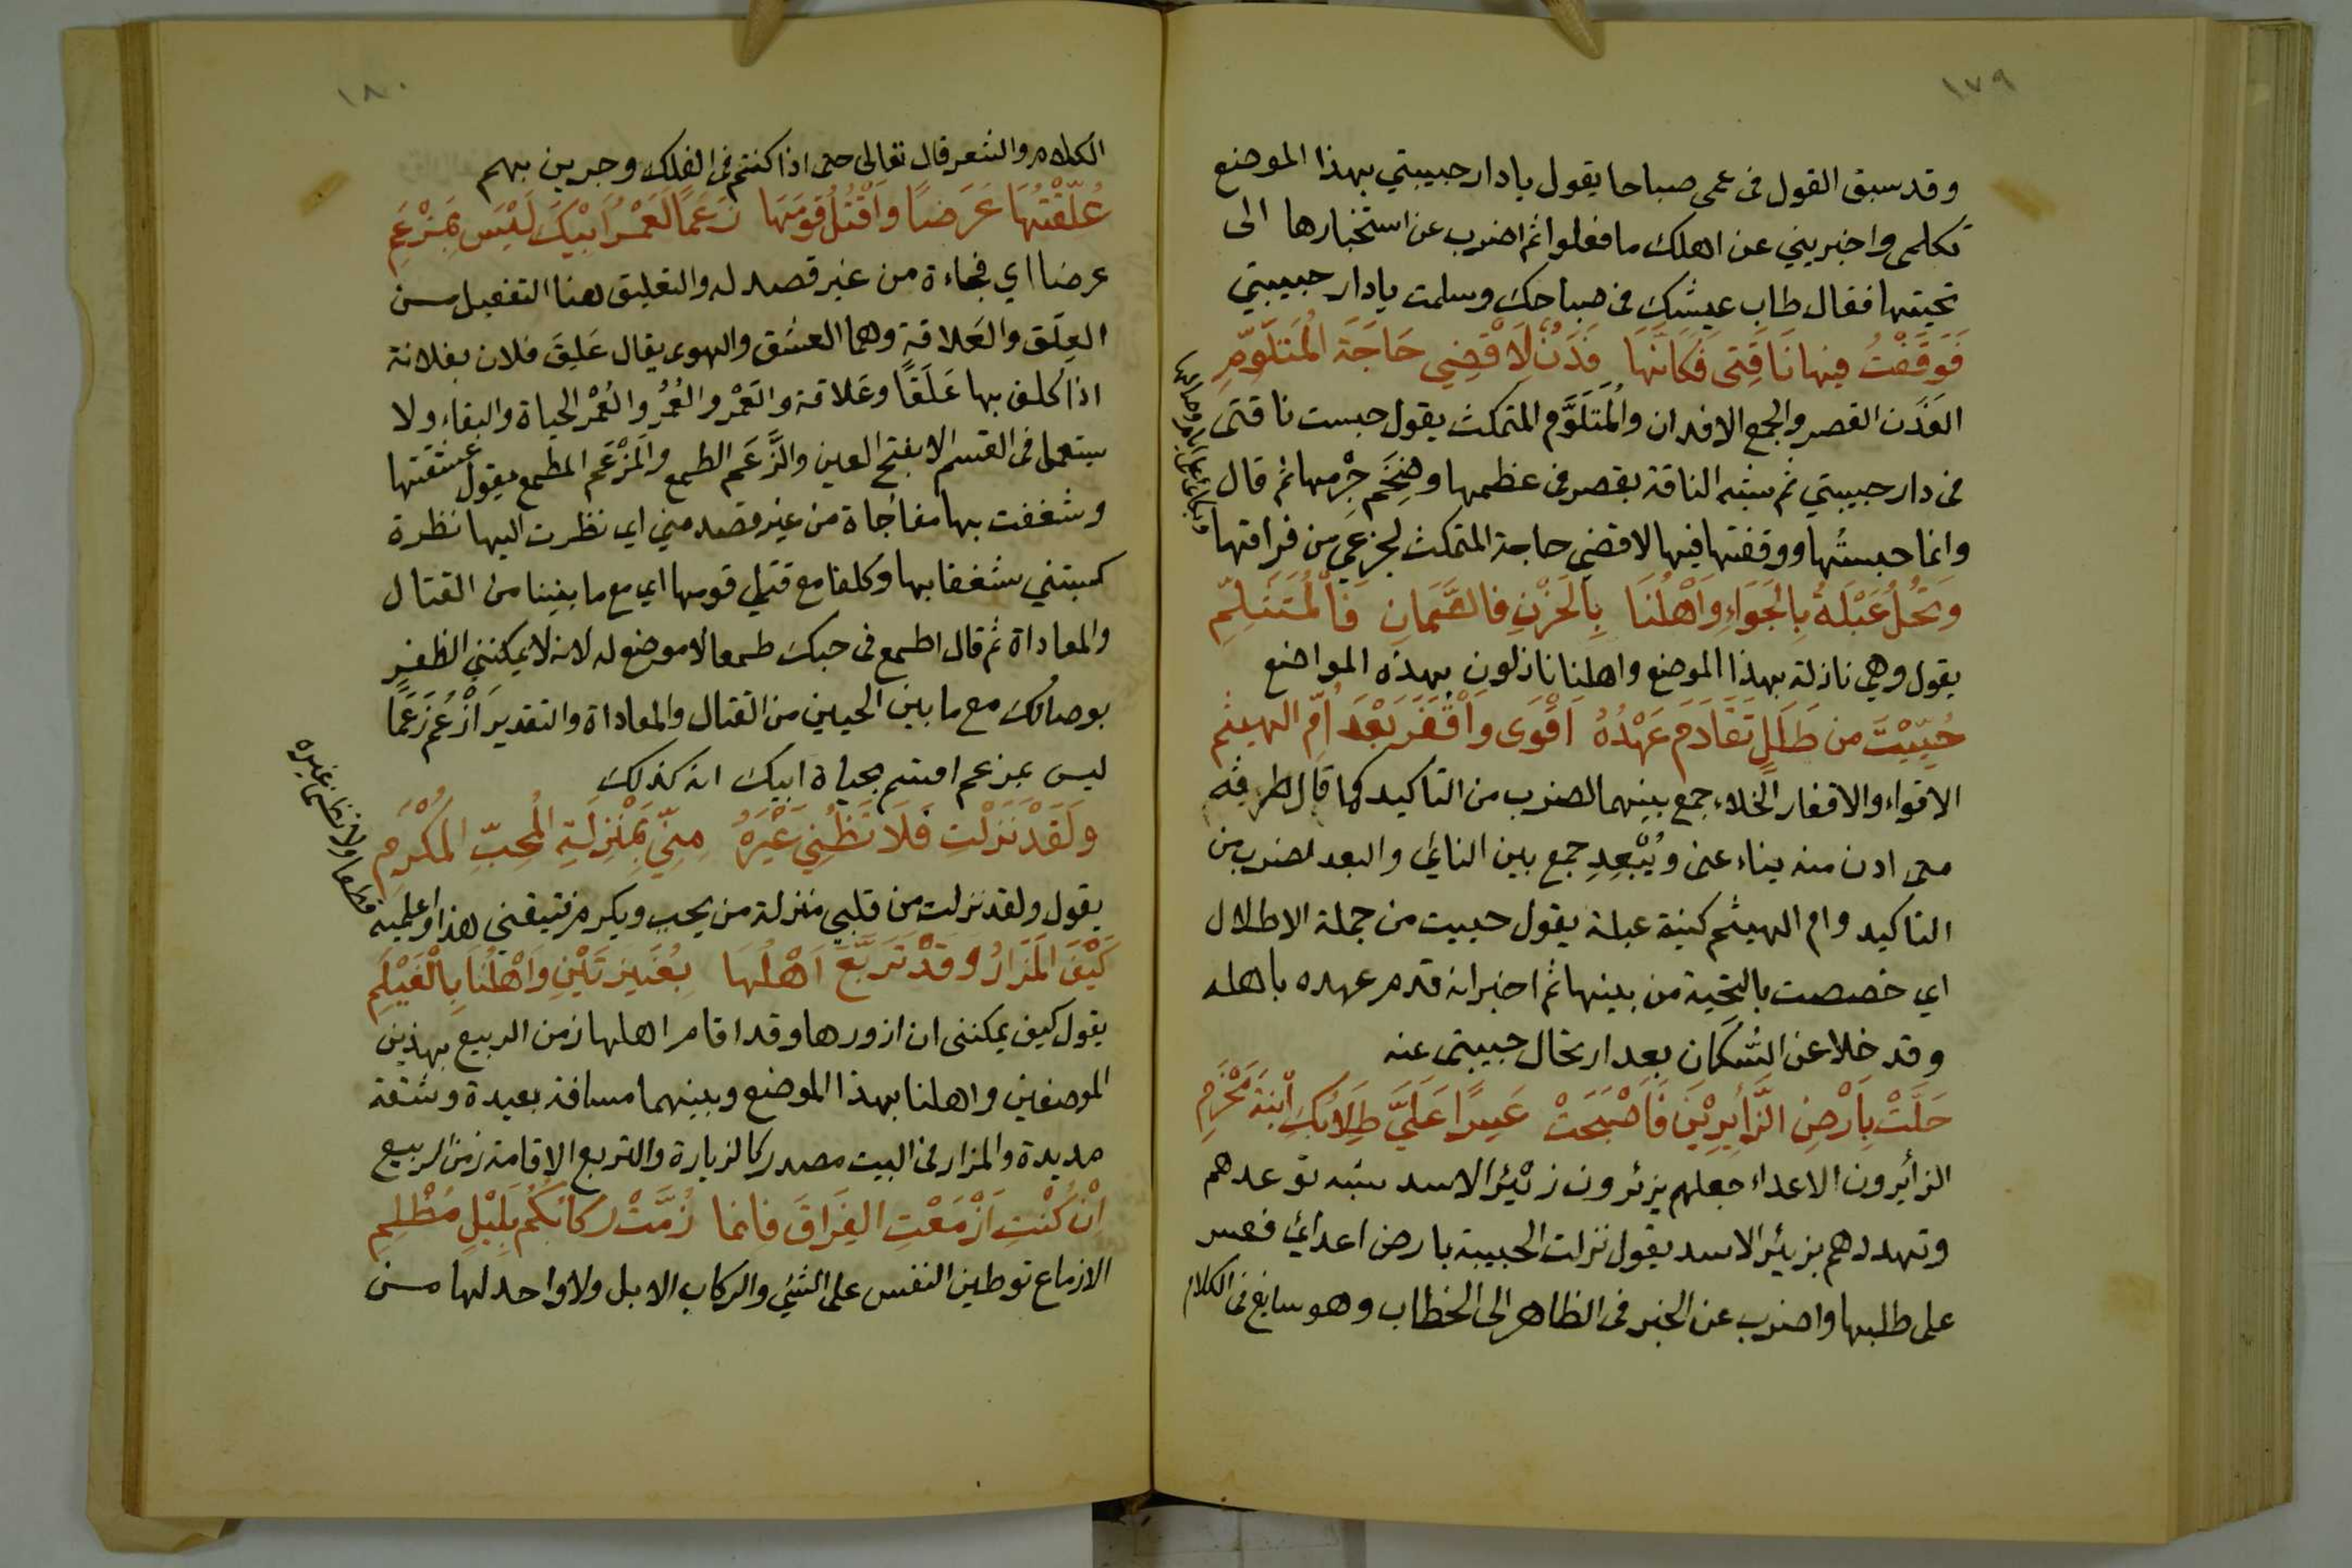 ١٧٩
وقد سبق القول فى عمى صباحا يقول يا دار حبيبتي بهذا الموضع
تكلمى واخبريني عن اهلك ما فعلوا ثم اضرب عن استخبارها الى
تحيتها فقال طاب عيشك فى صباحك وسلمت يا دار حبيبتي
فَوَقَفْتُ فيها نَاقَتِى فَكَاَنَّهَا فَدَنٌ لِاَقْضِي حَاجَةَ الْمُتَلَوِّمِ
الفَدَن القصر والجمع الافدان والْمُتَلَوَّم المتمكث يقول حبست ناقتى
فى دار حبيبتي ثم شبه الناقة بقصر فى عظمها وضِخَم جِرْمها ثم قال
وانما حبستها ووقفتها فيها لاقضي حاجة المتمكث لجزعى من فراقتها
وبكائى على ايام وصالها
وَتَحُلُّ عَبْلَةُ بِالْجَوَاءِ وَاَهْلُنَا بِالْحَزْنِ فالصَّمَانِ فَالْمُتَثَلِّمِ
يقول وهي نازلة بهذا الموضع واهلنا نازلون بهذه المواضع
حُيِّيْتَ من طَلَلٍ تَقَادَمَ عَهْدُهُ اَقْوَى وَاَقْفَرَ بَعْدَ اُمِّ الهيثم
الاقواء والاقفار الخلاء جمع بينهما لضرب من التاكيد كما قال طرفة
متى ادن منه يناء عنى ويُبْعِدِ جمع بين النائى والبعد لضرب من
التاكيد وام الهيثم كنية عبلة يقول حييت من جملة الاطلال
اي خصصت بالتحية من بينها ثم اخبر انه قدم عهده باهله
وقد خلا عن السُّكان بعد ارتحال حبيبتى عنه
حَلَّتْ بِاَرْضِ الزَّائِرِيْنَ فَاَصْبَحَتْ عَسِرًا عَلَيَّ طِلَابُكِ ابْنَةَ مَخْرَمِ
الزائرون الاعداء جعلهم يزئرون زئير الاسد شبه توعدهم
وتهددهم بزئير الاسد يقول نزلت الحبيبة بارض اعدائى فعسر
على طلبها واضرب عن الخبر فى الظاهر الى الخطاب وهو سايغ فى الكلام
١٨٠
الكلام والشعر قال تعالى حتى اذا كنتم فى الفلك وجرين بهم
عُلِّقْتُهَا عَرَضًا وَاَقْتُلُ قَوْمَهَا زَعَمًا لَعَمْرُ اَبِيْكَ لَيْسَ بِمَزْعَمِ
عرضا اي فجاءة من غير قصد له والتعليق هنا التفعيل من
العِلَق والعَلاقة وهما العشق والهوى يقال عَلِقَ فلان بفلانة
اذا كلف بها عَلَقًا وعَلاقة والعَمْر والعُمُر والعُمْر الحياة والبقاء ولا
يستعمل فى القسم الا بفتح العين والزَّعَم الطمع والمَزْعَم المطمع يقول عشقتها
وشغفت بها مفاجاة من غير قصد مني اي نظرت اليها نظرة
كسبتني شغفا بها وكلفا مع قتلي قومها اي مع ما بيننا من القتال
والمعاداة ثم قال اطمع فى حبك طمعا لا موضع له لانه لا يمكنني الظفر
بوصالك مع ما بين الحيين من القتال والمعاداة والتقدير اَزْعُم زَعَمًا
ليس بمزعم اقسم بحياة ابيك انه كذلك
وَلَقَدْ نَزَلْتِ فَلَا تَظُنِّي غَيْرَهُ مِنِّي بِمَنْزِلَةِ الْمُحِبِّ الْمُكْرَمِ
يقول ولقد نزلت من قلبي منزلة من يحب ويكرم فتيقني هذا واعلميه
قطعا ولا تظنى غيره
كَيْفَ الْمَزَارُ وَقَدْ تَرَبَّعَ اَهْلُهَا بِعُنَيْزَتَيْنِ وَاَهْلُنَا بِالْغَيْلَمِ
يقول كيف يمكننى ان ازورها وقد اقام اهلها زمن الربيع بهذين
الموضعين واهلنا بهذا الموضع وبينهما مسافة بعيدة وشقة
مديدة والمزار فى البيت مصدر كالزيارة والتربع الاقامة زمن الربيع
اِنْ كُنْتِ اَزْمَعْتِ الفِرَاقَ فانما زُمَّتْ رِكَابُكُمْ بِلَيْلٍ مُظْلِمِ
الازماع توطين النفس على الشئ والركاب الابل ولا واحد لها من